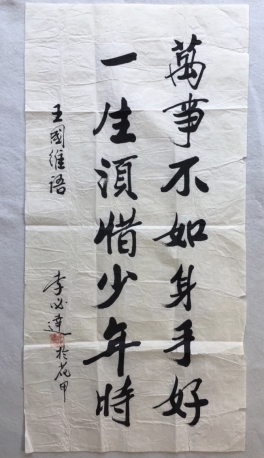 萬事不如身手好
一生須惜少年時
王國維語
李必達於花甲